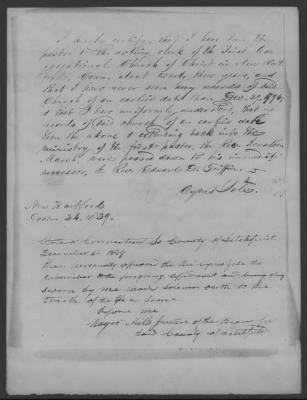 I hereby certify, that I have been the
pastor & the acting clerk of the First Con
gregational Church of Christ in New Hart
ford, Conn. about twenty three years, and
that I have never seen any records of said
Church of an earlier date than Dec. 29, 179
& that I have uniformly understood, that no
records of said church of an earlier date
than the above & extending back into the
ministry of the first pastor, the Rev. Jonathan
Marsh, were passed down to his
successor, to Rev. Edward D. Griffin.
Cyrus Yale.
New Hartford
24, 1839.
State of Connecticut ss County of Litchfield
December 1839
then personally appeared the
subscriber to the foregoing affidavit and being duly
sworn by me made solemn oath to the
truth of the same
before me
Roger Mills Justice of the Peace for
said County of Litchfield